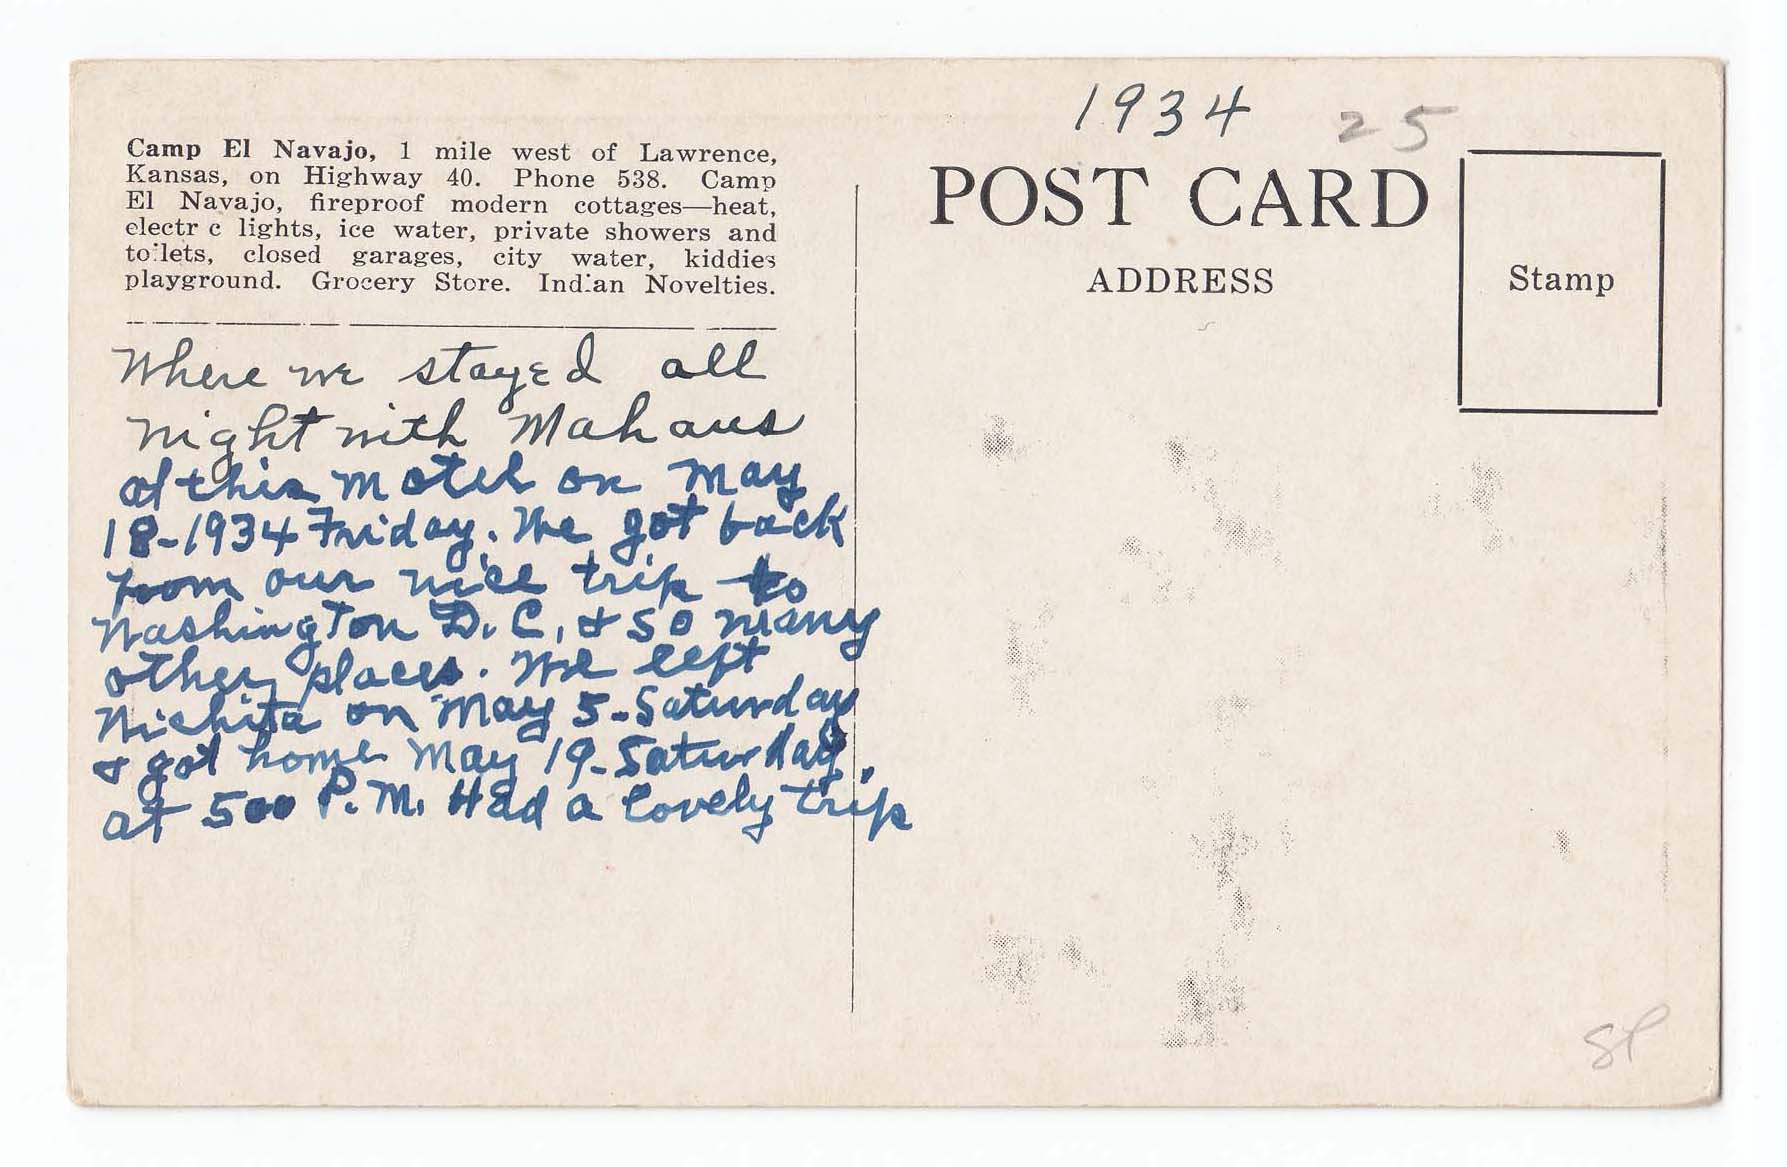 1934 25
Camp El Navajo, 1 mile west of Lawrence,
Kansas, on Highway 40. Phone 538. Camp
El Navajo, fireproof modern cottages—heat,
electr c lights, ice water, private showers and
toilets, closed garages, city water, kiddies
playground. Grocery Store. Indian Novelties.
POST CARD
ADDRESS
Stamp
Where we stayed all
night with Mahans
at this Motel on May
18-1934 Friday. We got back
from our nice trip to
Washington D.C. & so many
other places. We left
Wichita on May 5-Saturday
& got home May 19-Saturday,
at 500 P.M. Had a lovely trip